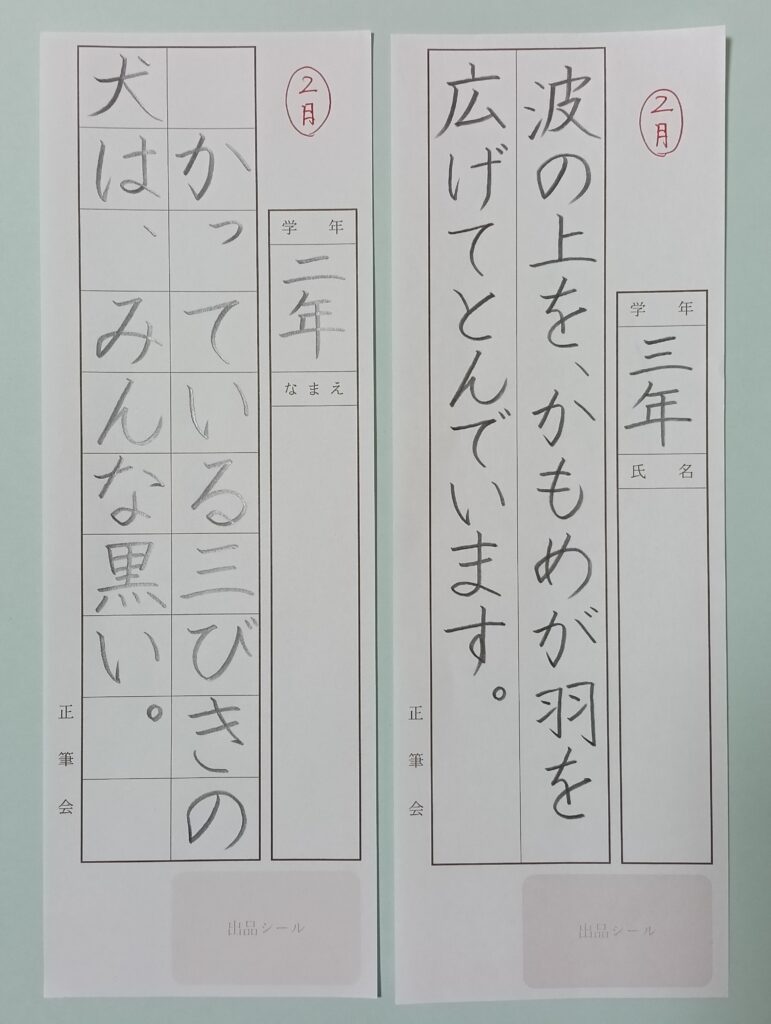 ２月
学年
三年
氏名
波の上を、かもめが羽を
広げてとんでいます。
正筆会
出品シール
２月
学年
二年
なまえ
かっている三びきの
犬は、みんな黒い。
正筆会
出品シール